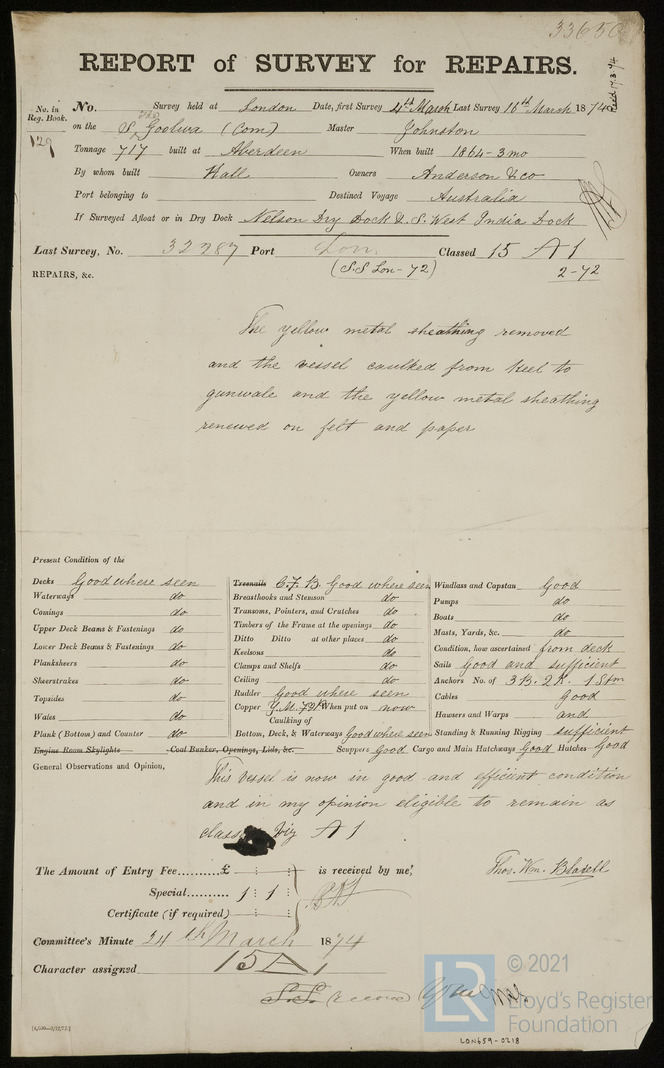 33650
REPORT of SURVEY for REPAIRS.
Recd 17.3.74
No. in Reg. Book. No. Survey held at London Date, first Survey 4th March Last Survey 16th March 1874
129 on the S. Goolwa (Com) Master Johnston
Tonnage 717 built at Aberdeen When built 1864-3mo
By whom built Hall Owners Anderson & Co
Port belonging to Destined Voyage Australia
If Surveyed Afloat or in Dry Dock Nelson Dry Dock & S. West India Dock
Last Survey, No. 32287 Port Lon. Classed 15 A 1
REPAIRS, &c. (S.S Lon-72) 2-72
The yellow metal sheathing removed
and the vessel caulked from keel to
gunwale and the yellow metal sheathing
renewed on felt and paper
Present Condition of the
Decks Good where seen
Waterways do
Comings do
Upper Deck Beams & Fastenings do
Lower Deck Beams & Fastenings do
Planksheers do
Sheerstrakes do
Topsides do
Wales do
Plank (Bottom) and Counter do
Treenails C.F.B. Good where seen
Breasthooks and Stemson do
Transoms, Pointers, and Crutches do
Timbers of the Frame at the openings do
Ditto Ditto at other places do
Keelsons do
Clamps and Shelfs do
Ceiling do
Rudder Good where seen
Copper Y.M. When put on now
Caulking of
Bottom, Deck, & Waterways Good where seen
Windlass and Capstan Good
Pumps do
Boats do
Masts, Yards, &c. do
Condition, how ascertained from deck
Sails Good and sufficient
Anchors No. of 3 B. 2 K. 1 Stm
Cables Good
Hawsers and Warps and
Standing & Running Rigging sufficient
Engine Room Skylights Coal Bunker, Openings, Lids, &c. Scuppers Good Cargo and Main Hatchways Good Hatches Good
General Observations and Opinion,
This vessel is now in good and efficient condition
and in my opinion eligible to remain as
class viz A 1
The Amount of Entry Fee..........£ : : is received by me,
Special.......... 1 : 1 :
Certificate (if required) : :
Thos. Wm. Blaxell
Committee's Minute 24th March 1874
Character assigned 15 A 1
S.S. record
LR © 2021
Lloyd's Register
Foundation
LON659-0218